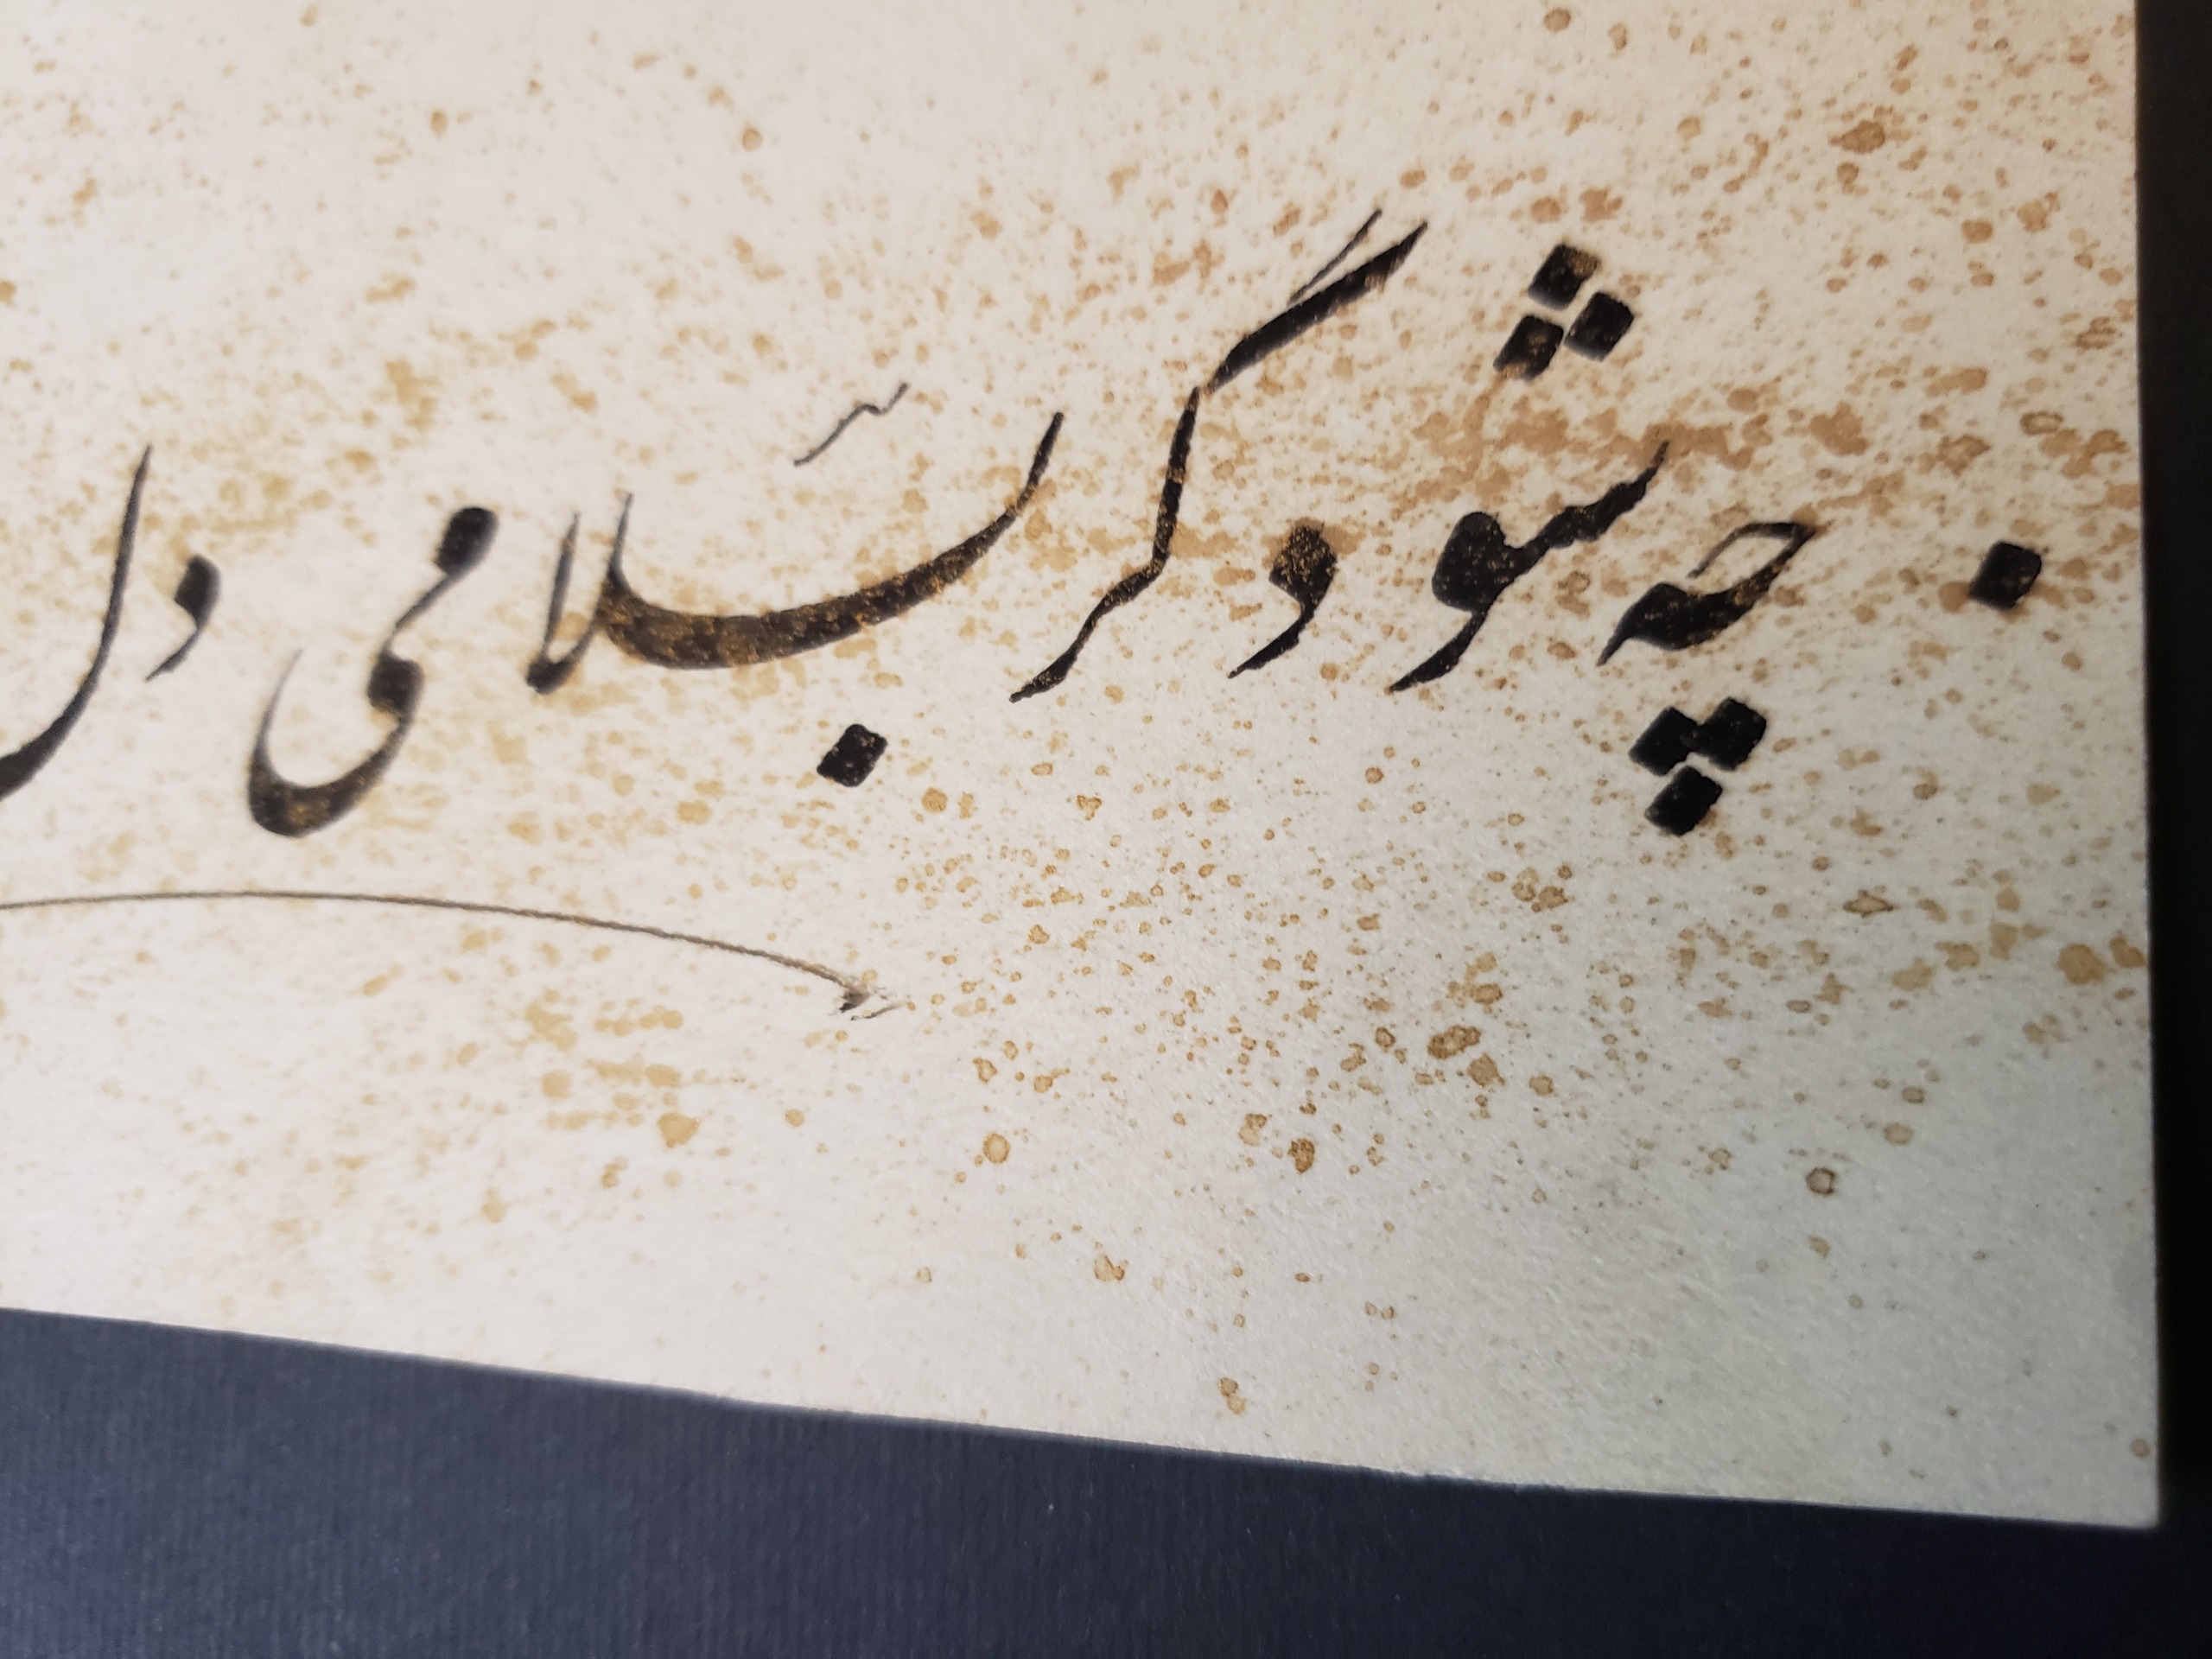 چه شود گر بسلامی دل